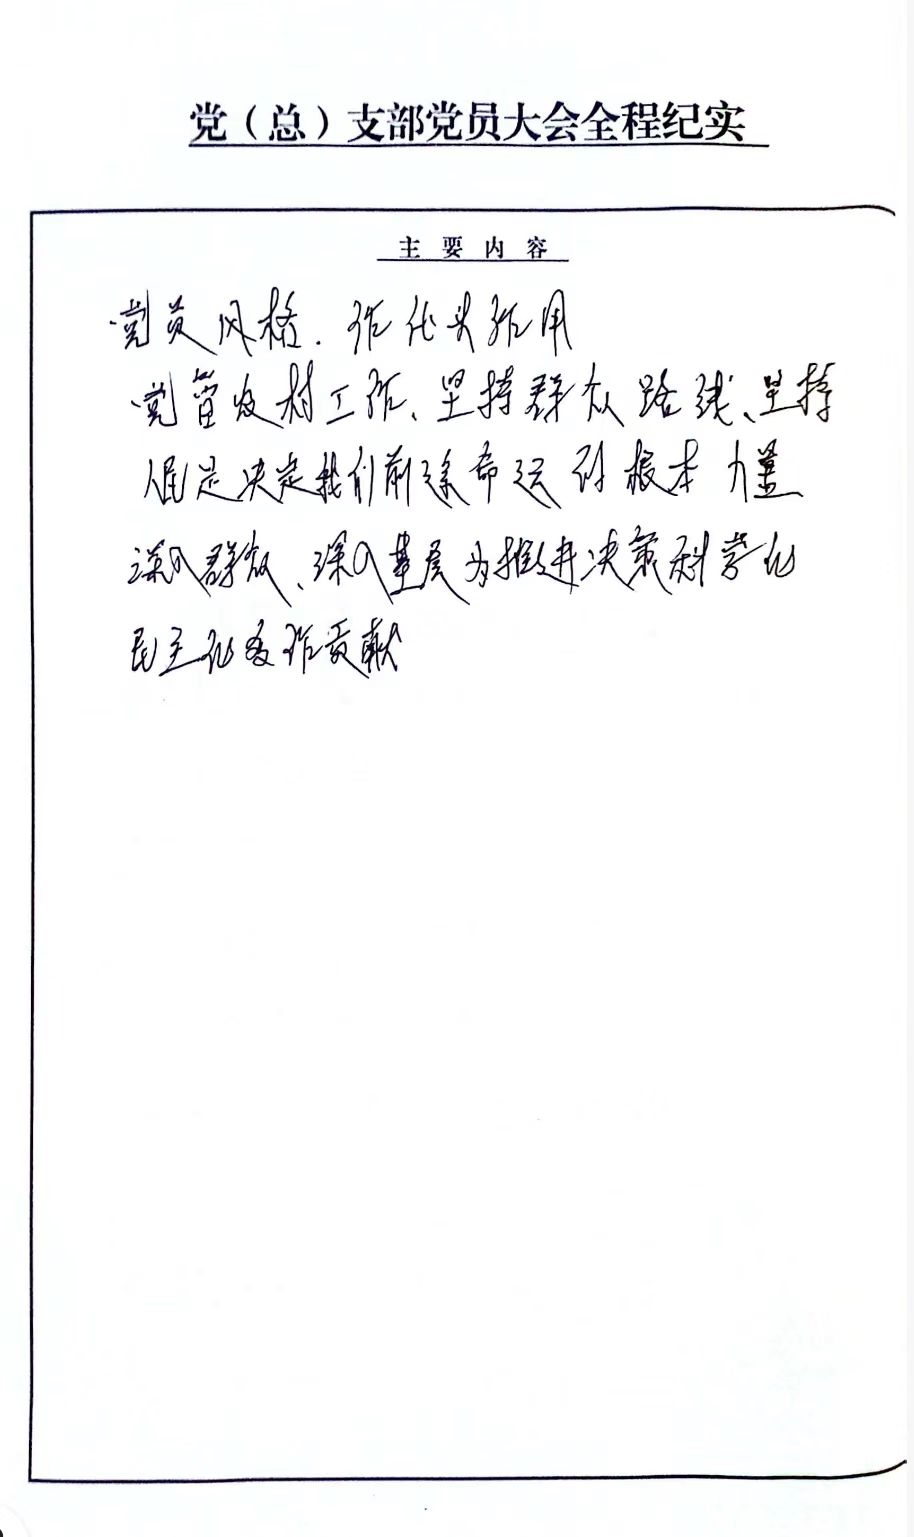 党（总）支部党员大会全程纪实
主要内容
党员风格．作代头作用
党管农村工作、坚持群众路线、坚持
人民是决定我们前途命运的根本力量
深入群众、深入基层为推进决策科学化
民主化多作贡献